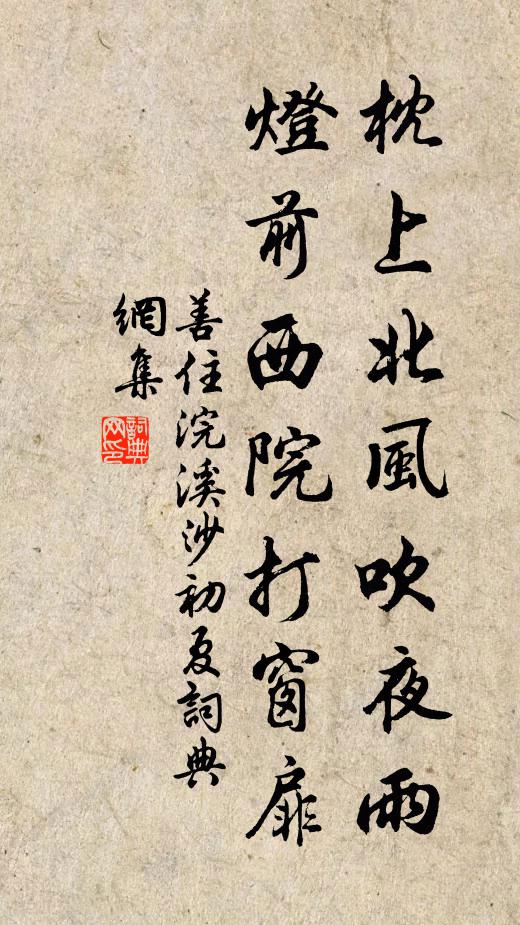 枕上北風吹夜雨
燈前西院打窗扉
善住浣溪沙初夏詞典
網集
詞典
网印